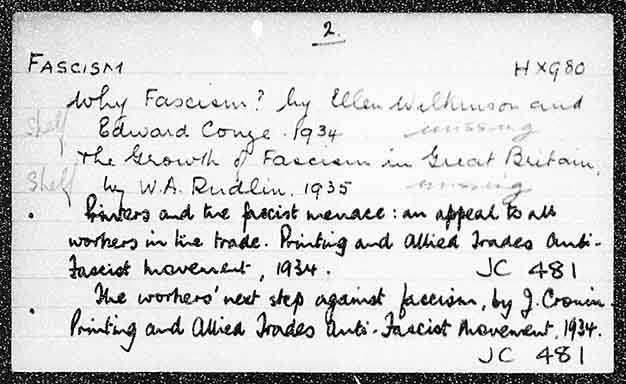 2.
FASCISM HX980
Why Fascism? by Ellen Wilkinson and
Shelf Edward Conze. 1934 missing
The Growth of Fascism in Great Britain,
Shelf by W.A. Rudlin. 1935 missing
• Printers and the fascist menace: an appeal to all
workers in the trade. Printing and Allied Trades Anti-
Fascist Movement, 1934. JC 481
The workers' next step against fascism, by J. Cronin.
• Printing and Allied Trades Anti-Fascist Movement, 1934.
JC 481